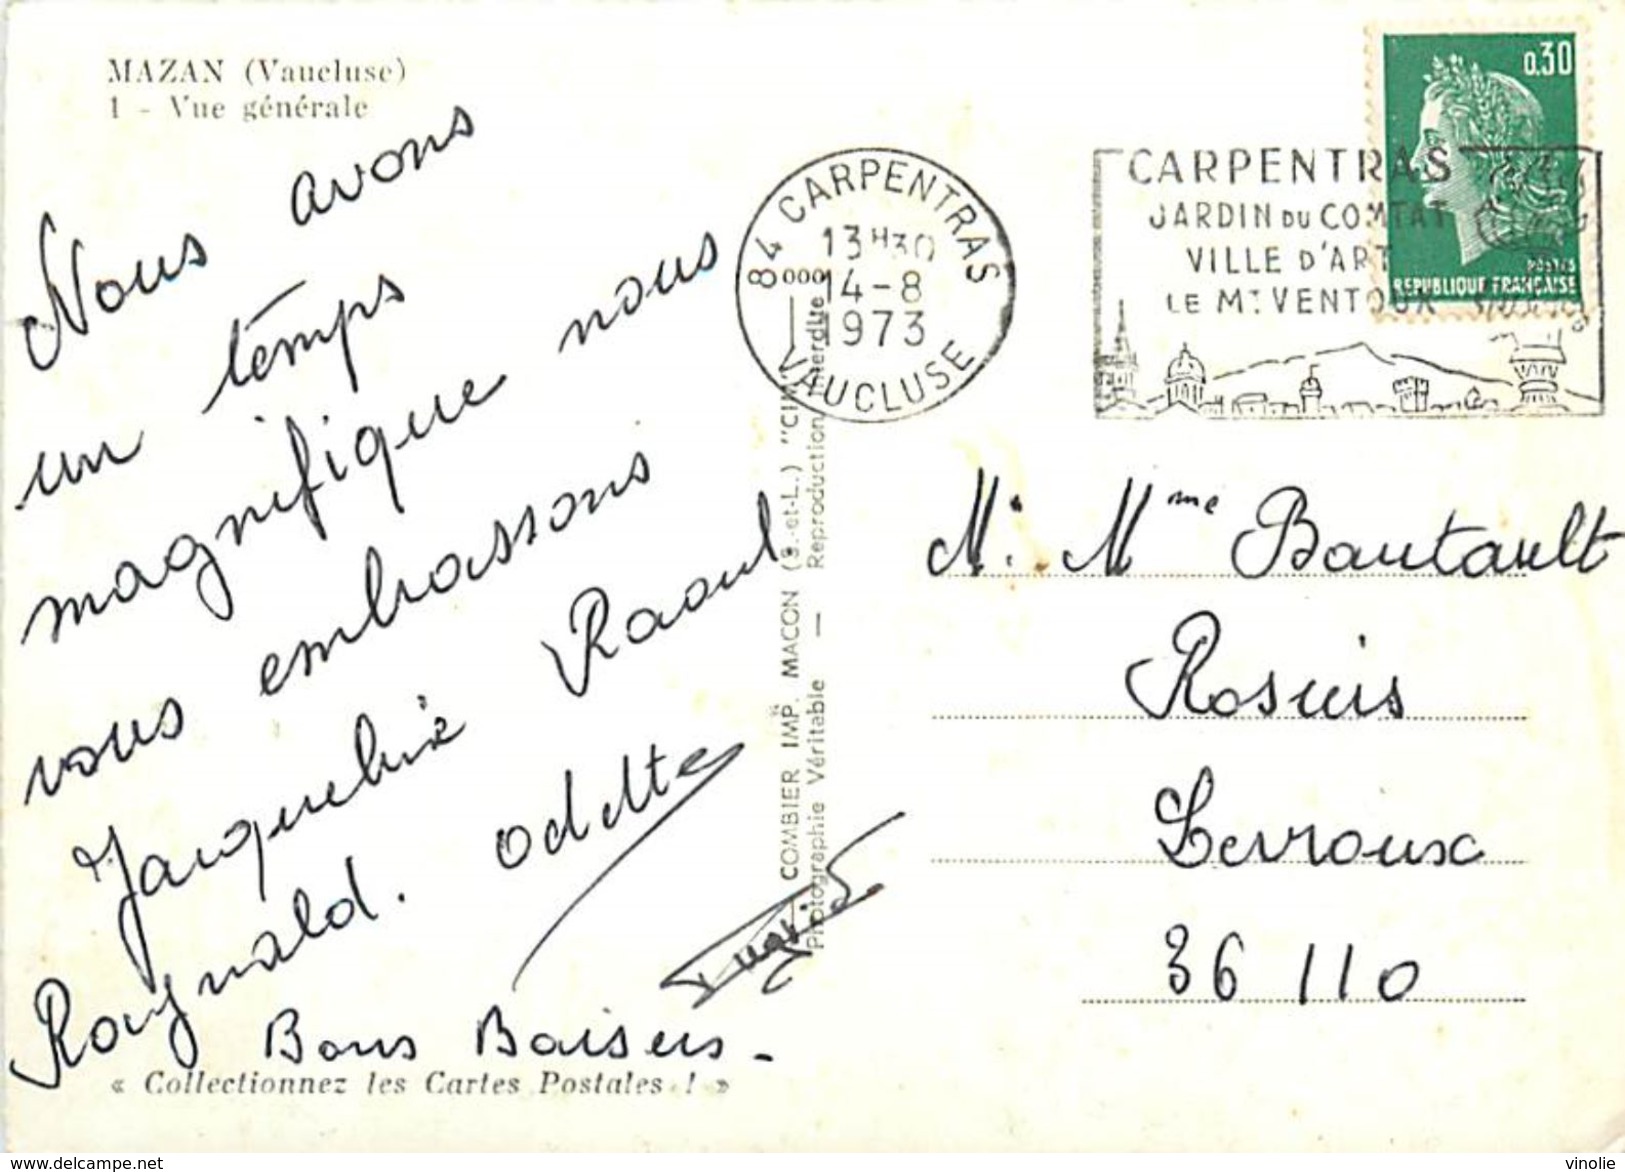 MAZAN (Vaucluse)
1 - Vue générale
Nous avons
un temps
magnifique nous
vous embrassons
Jacqueline Raoul
Raynald. Odette
Bons Baisers -
« Collectionnez les Cartes Postales ! »
COMBIER IMP. MACON (S.-et-L.) "CIM
Photographie Véritable — Reproduction Interdite
84 CARPENTRAS
13H30
14-8
1973
VAUCLUSE
CARPENTRAS
JARDIN DU COMTAT
VILLE D'ART
LE MT VENTOUX
0,30
POSTES
REPUBLIQUE FRANÇAISE
M. Mme Bautault
Rosiers
Levroux
36110
delcampe.net
vinolie